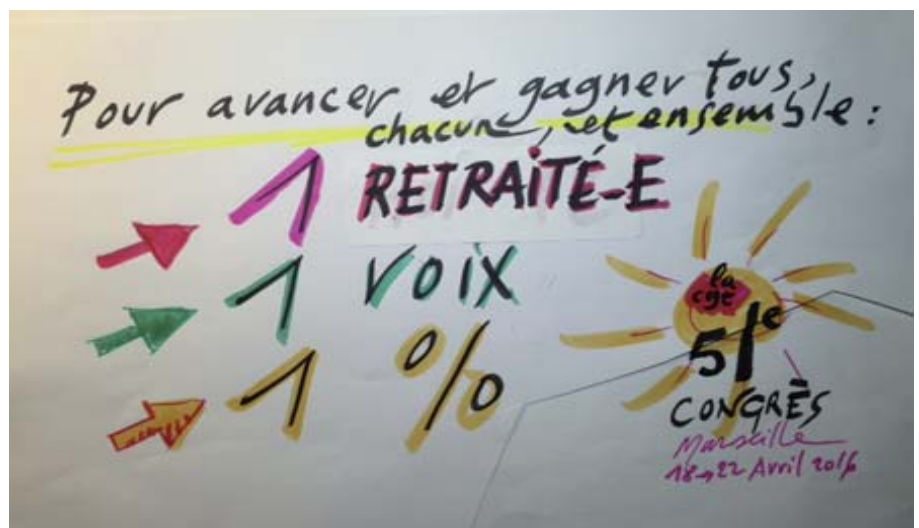 Pour avancer et gagner tous,
chacun, et ensemble :
1 RETRAITÉ-E
1 VOIX
1 %
la
cgt
51e
CONGRÈS
Marseille
18→22 Avril 2016